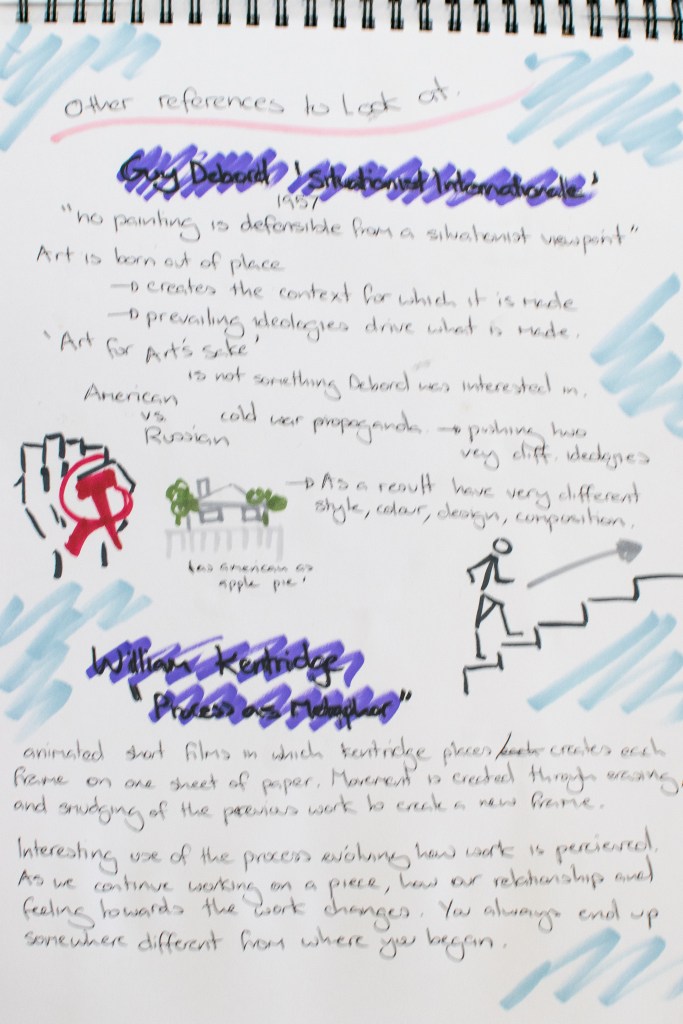 Other references to Look at.
Guy Debord 'Situationist Internationale'
1957
"no painting is defensible from a situationist viewpoint"
Art is born out of place
→ creates the context for which it is made
→ prevailing ideologies drive what is made.
'Art for Art's sake'
is not something Debord was interested in.
American
vs.
Russian
cold war propaganda → pushing two
very diff. ideologies
→ As a result have very different
style, colour, design, composition.
'as american as
apple pie'
William Kentridge
"Process as Metaphor"
animated short films in which Kentridge places creates each
frame on one sheet of paper. Movement is created through erasing,
and smudging of the previous work to create a new frame.
Interesting use of the process evolving how work is percieved.
As we continue working on a piece, how our relationship and
feeling towards the work changes. You always end up
somewhere different from where you began.